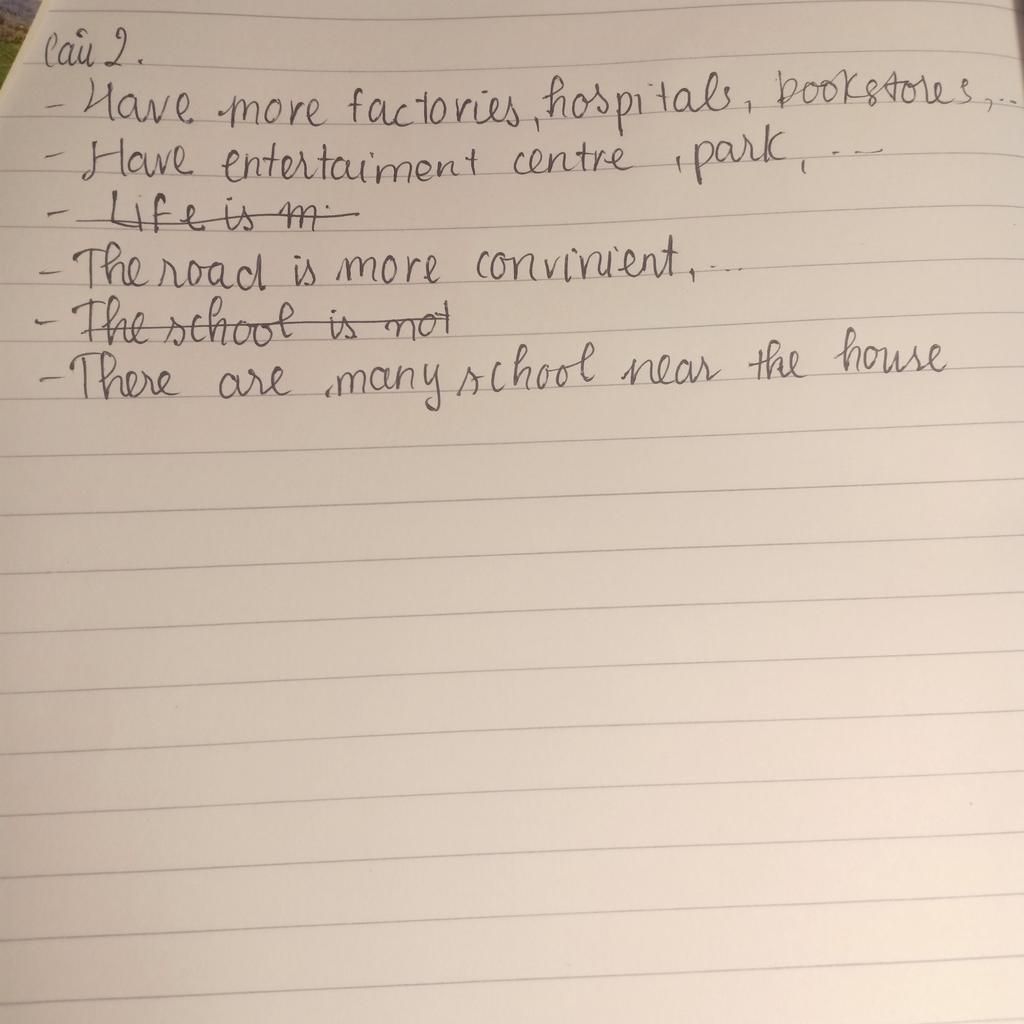 Câu 2.
- Have more factories, hospitals, bookstores,...
- Have entertaiment centre, park, ...
- Life is m
- The road is more convinient, ...
- The school is not
- There are many school near the house